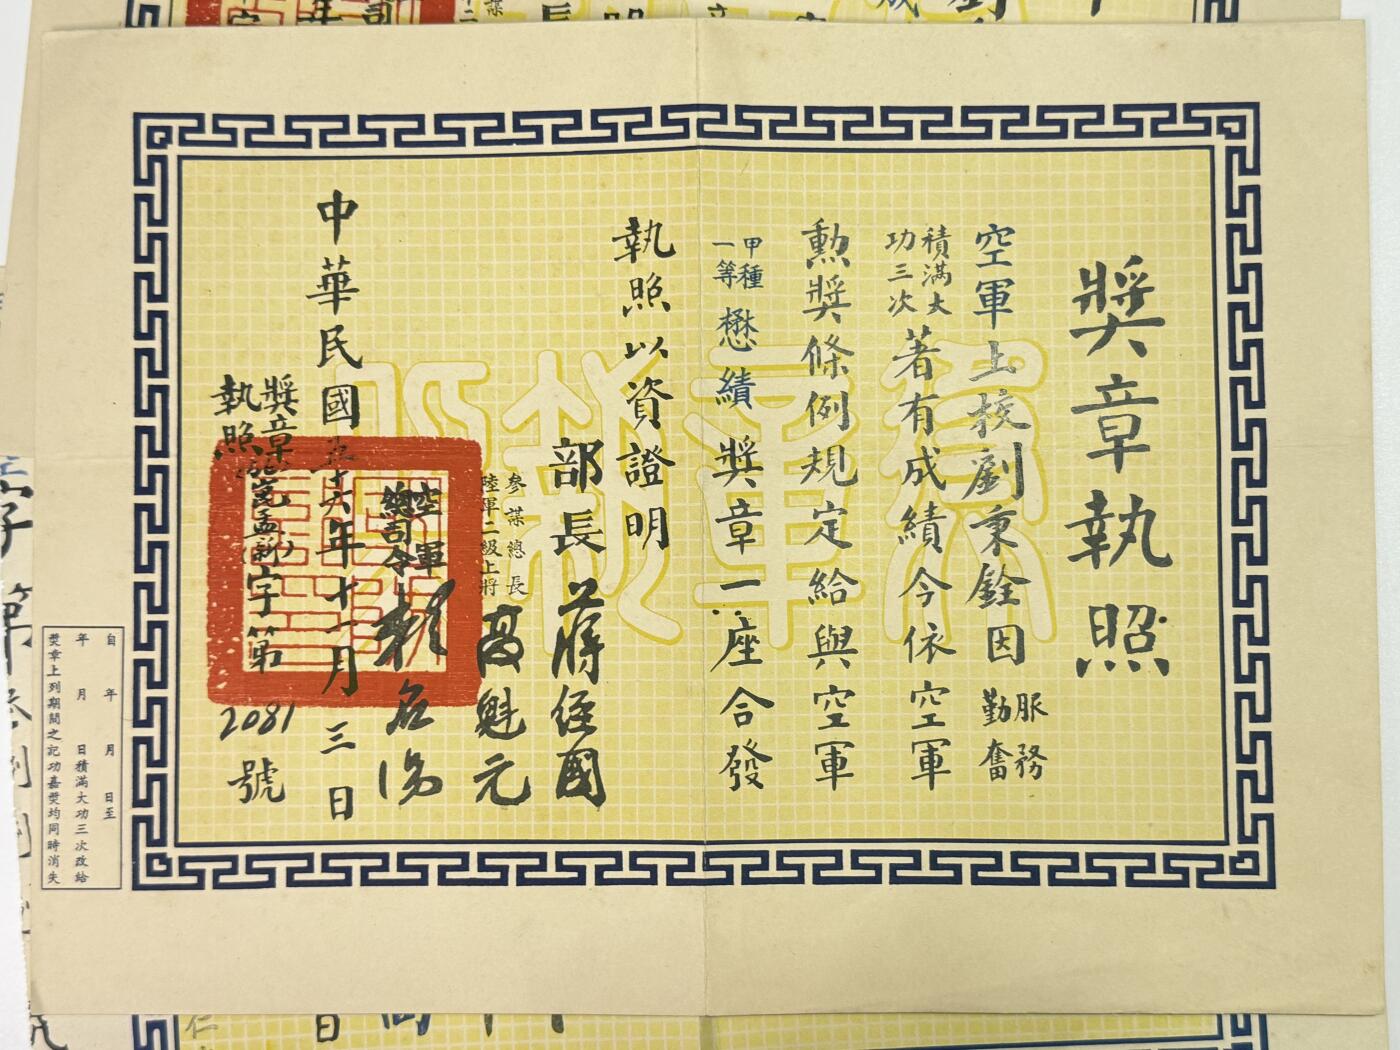 獎章執照
空軍上校劉秉銓因服務勤奮
積滿大功三次著有成績今依空軍
勲獎條例規定給與空軍
甲種一等懋績獎章一座合發
執照以資證明
部長 蔣經國
參謀總長
陸軍二級上將 高魁元
空軍
總司令 賴名湯
中華民國五十六年十一月三日
獎章
執照 字第2081號
自 年 月 日至
年 月 日積滿大功三次改給
獎章上列期間之記功嘉獎均同時消失